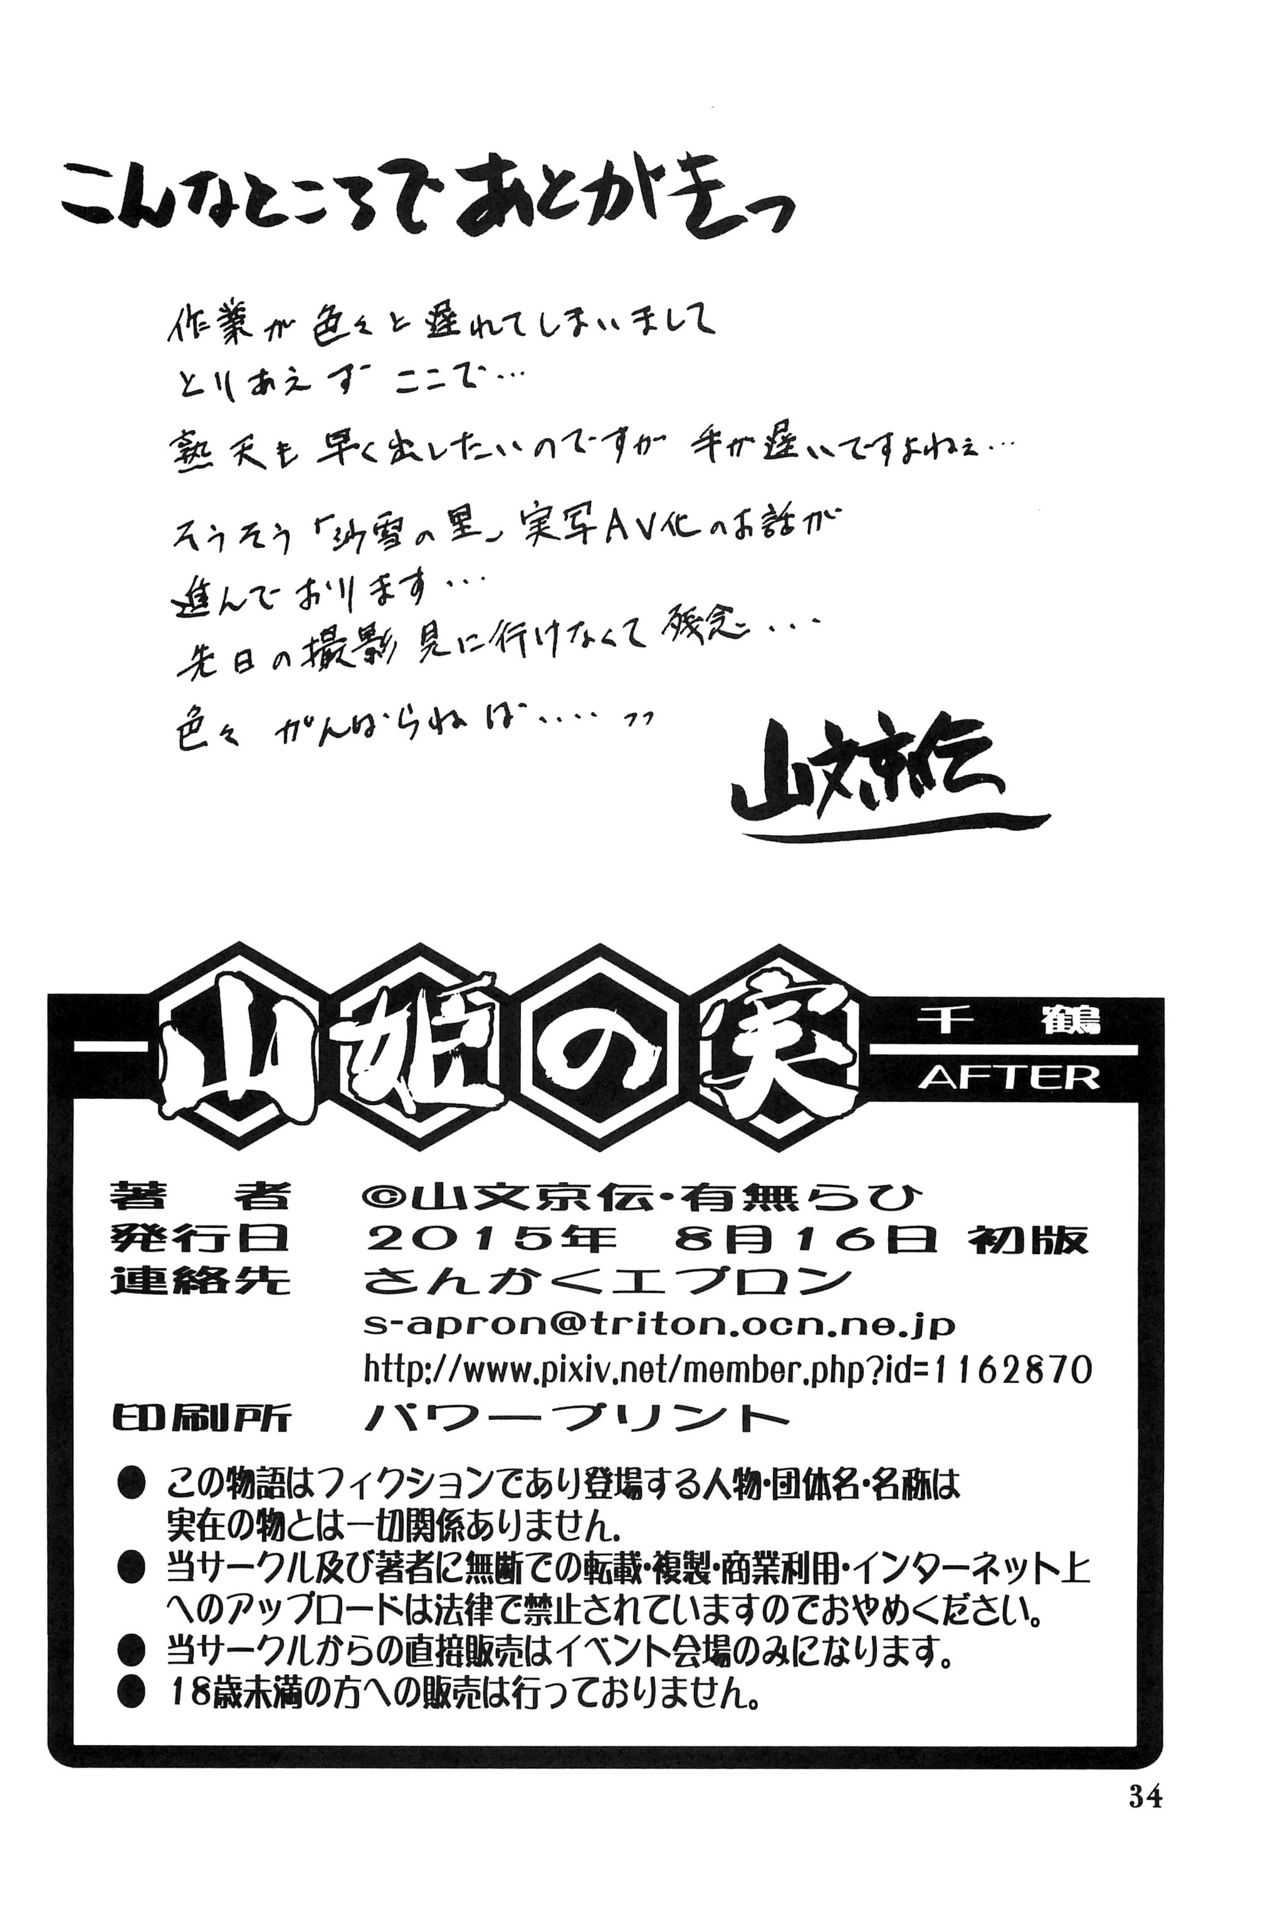 こんなところであとがきっ
作業が色々と遅れてしまいまして
とりあえず ここで…
熟天も早く出したいのですが 手が遅いですよねぇ…
そうそう「沙雪の里」実写AV化のお話が
進んでおります…
先日の撮影見に行けなくて残念...
色々 がんばらねば....っっ
山文京伝
山姫の実
千鶴
AFTER
著者 ©山文京伝・有無らひ
発行日 2015年 8月16日 初版
連絡先 さんかくエプロン
s-apron@triton.ocn.ne.jp
http://www.pixiv.net/member.php?id=1162870
印刷所 パワープリント
● この物語はフィクションであり登場する人物・団体名・名称は
実在の物とは一切関係ありません.
● 当サークル及び著者に無断での転載・複製・商業利用・インターネット上
へのアップロードは法律で禁止されていますのでおやめください。
● 当サークルからの直接販売はイベント会場のみになります。
● 18歳未満の方への販売は行っておりません。
34